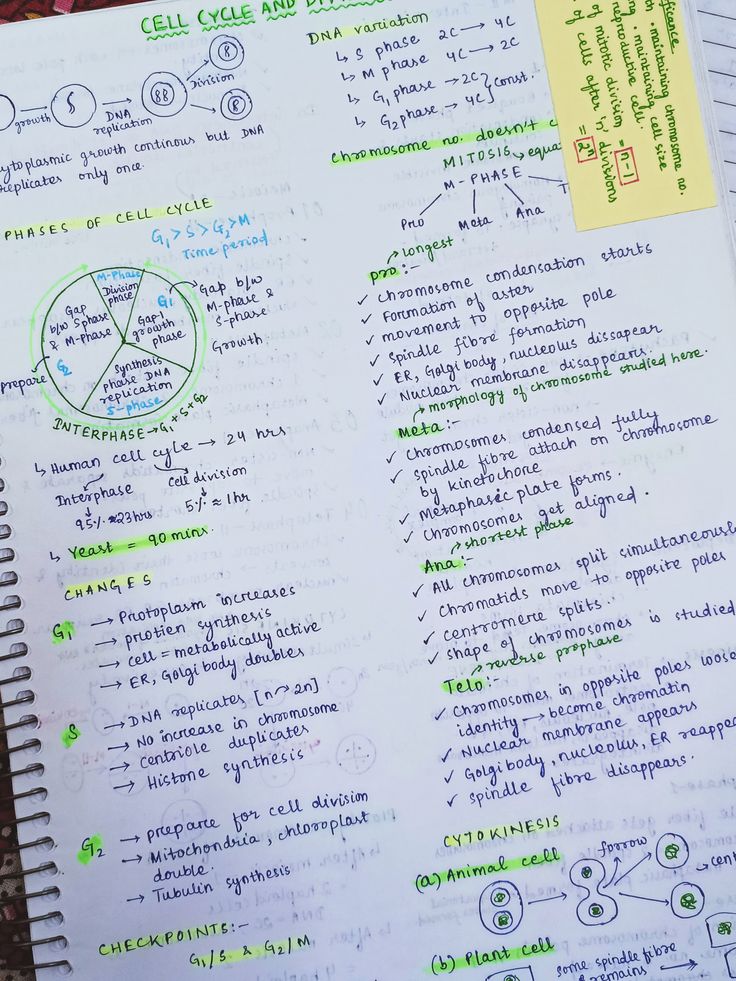 CELL CYCLE AND
growth
DNA
replication
Division
cytoplasmic growth continous but DNA
replicates only once.
PHASES OF CELL CYCLE
G1 > S > G2 > M
Time period
M-Phase
Division
phase
G1
Gap-1
growth
phase
Gap b/w
M-phase &
S-phase
Growth.
Gap
b/w S phase
& M-phase
G2
prepare
Synthesis
phase DNA
replication
S-phase
INTERPHASE → G1 + S + G2
↳ Human cell cycle → 24 hrs
Interphase
95% ≈ 23 hrs
cell division
5% ≈ 1 hr
↳ Yeast = 90 mins.
CHANGES
G1 → Protoplasm increases
→ protien synthesis
→ cell = metabolically active
→ ER, Golgi body, doubles
S → DNA replicates [n → 2n]
→ No increase in chromosome
→ centriole duplicates
→ Histone synthesis
G2 → prepare for cell division
→ Mitochondria, chloroplast
double.
→ Tubulin synthesis
CHECKPOINTS:-
G1/S & G2/M
DNA variation
↳ S phase 2C → 4C
↳ M phase 4C → 2C
↳ G1 phase → 2C
↳ G2 phase → 4C } const.
chromosome no. doesn't
MITOSIS → equa
M-PHASE
Pro
Meta
Ana
maintaining chromosome no.
maintaining cell size
reproductive cell.
of mitotic division = n-1
of cells after 'n' divisions
= 2ⁿ
longest
Pro:-
✓ Chromosome condensation starts
✓ Formation of aster
✓ movement to opposite pole
✓ Spindle fibre formation
✓ ER, Golgi body, nucleolus dissapear
✓ Nuclear membrane disappears.
morphology of chromosome studied here.
Meta:-
✓ Chromosomes condensed fully
✓ Spindle fibre attach on chromosome
by kinetochore
✓ Metaphasic plate forms.
✓ Chromosomes get aligned.
shortest phase
Ana:-
✓ All chromosomes split simultaneously
✓ Chromatids move to opposite poles
✓ centromere splits.
✓ shape of chromosomes is studied
reverse prophase
Telo:-
✓ Chromosomes in opposite poles loose
identity → become chromatin
✓ Nuclear membrane appears
✓ Golgi body, nucleolus, ER reappea
✓ spindle fibre disappears.
CYTOKINESIS
(a) Animal cell
forrow
(b) Plant cell
some spindle fibre
remains